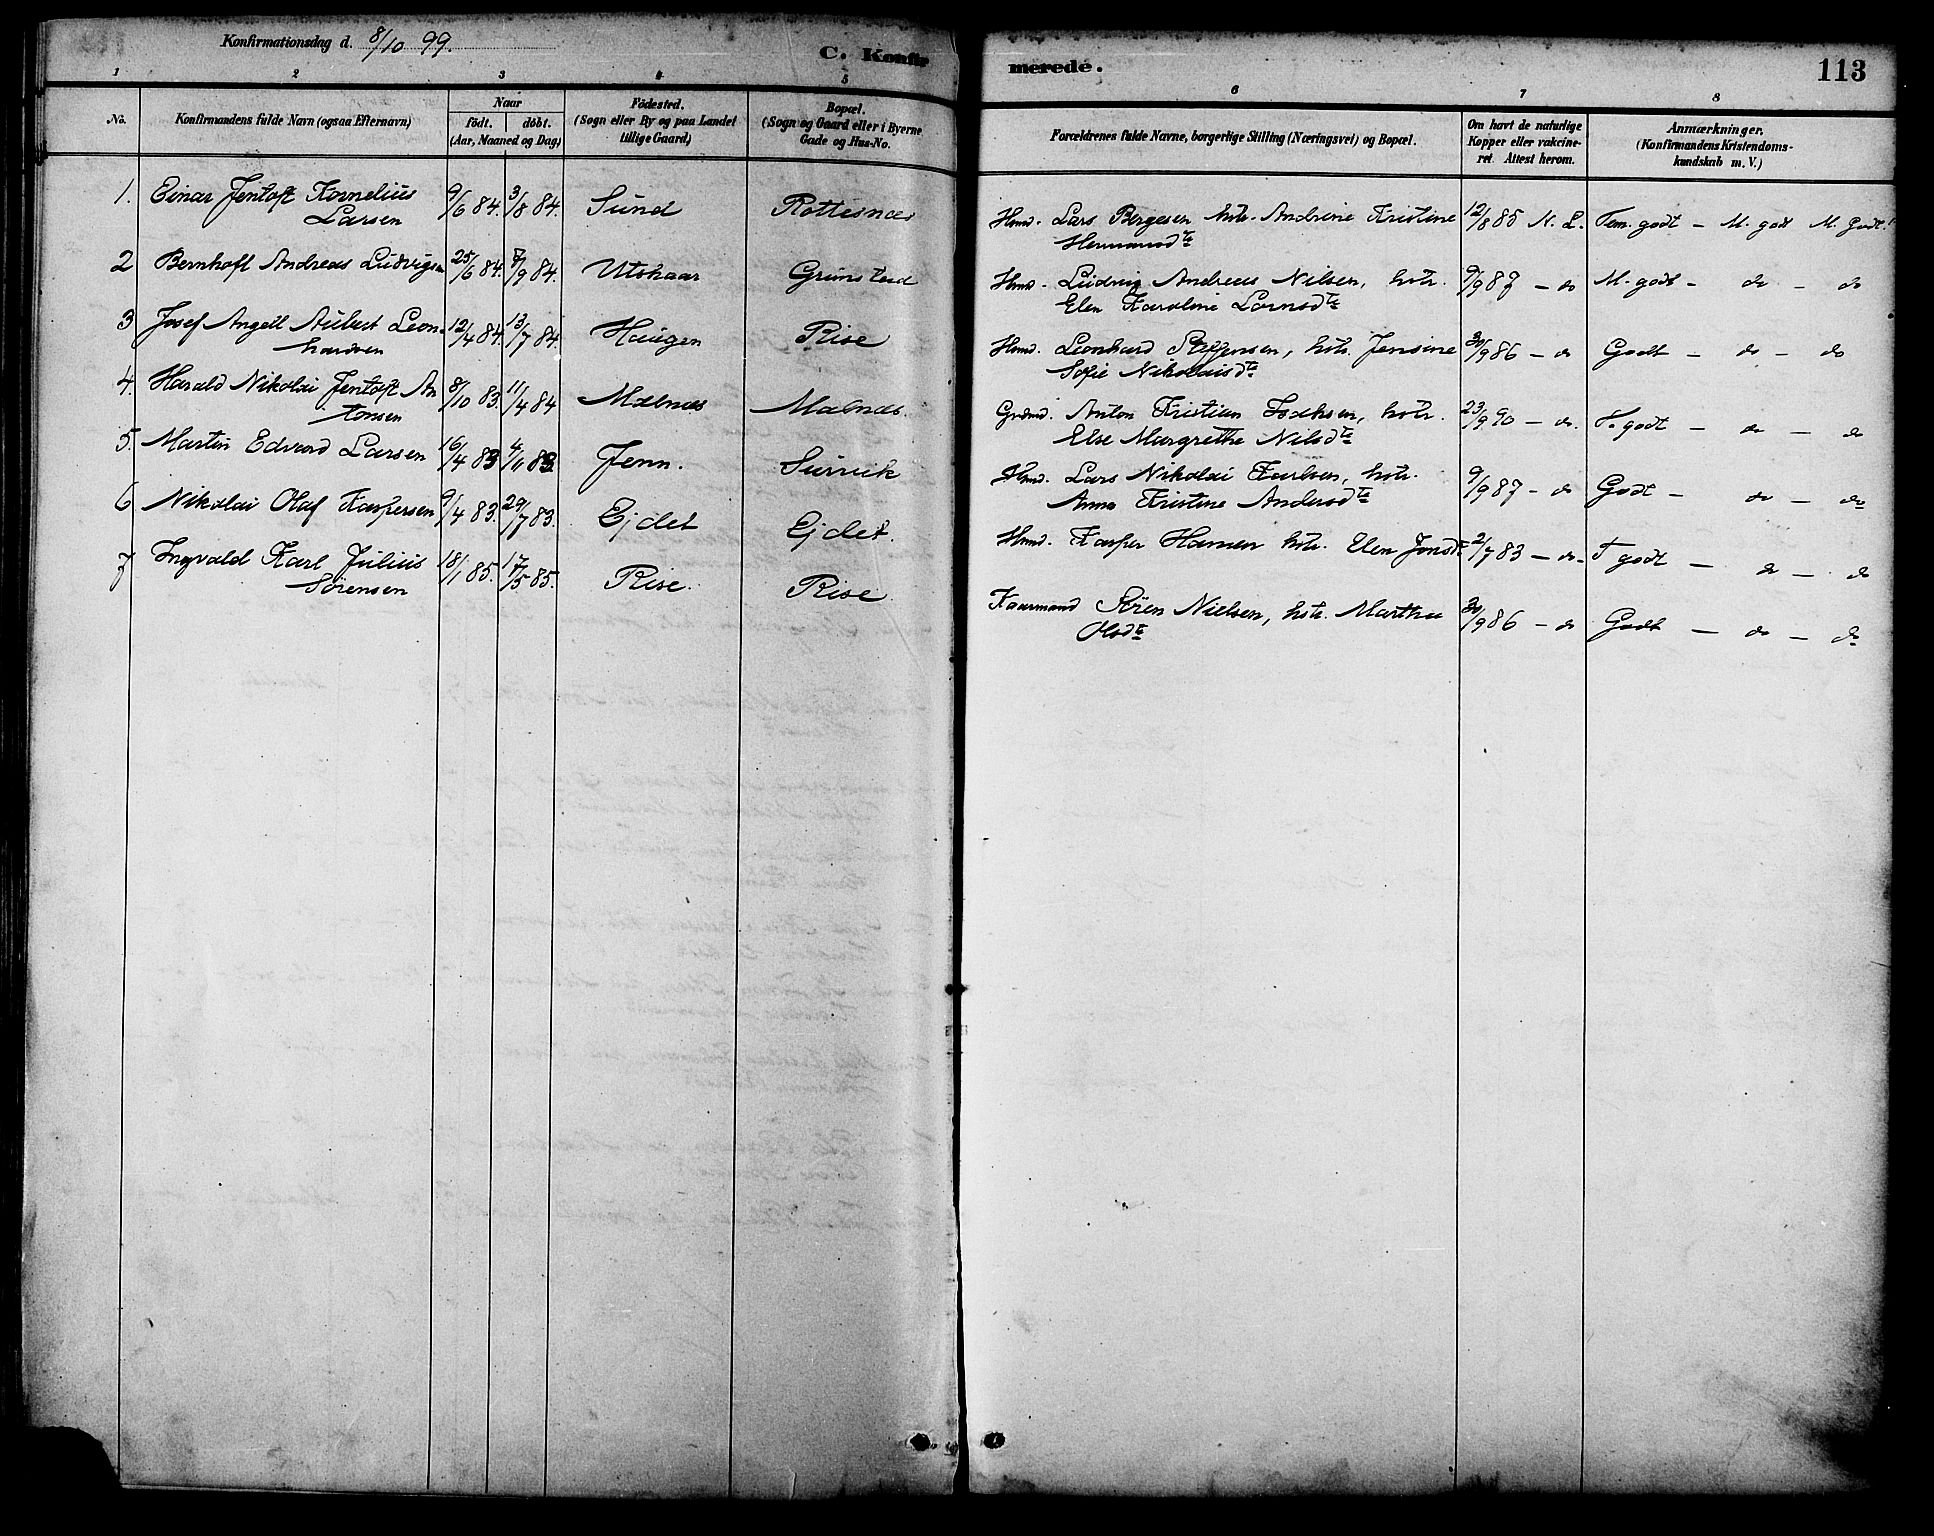 Konfirmationsdag d. 8/10 99.
C. Konfir
merede.
113
1 2 3 4 5 6 7 8
No.
Konfirmandens fulde Navn (ogsaa Efternavn)
Naar
födt. döbt.
(Aar, Maaned og Dag)
Födested.
(Sogn eller By og paa Landet
tillige Gaard.)
Bopæl.
(Sogn og Gaard eller i Byerne
Gade og Hus-No.
Forældrenes fulde Navne, borgerlige Stilling (Næringsvei) og Bopæl.
Om havt de naturlige
Kopper eller vakcine-
ret. Attest herom.
Anmærkninger.
(Konfirmandens Kristendoms-
kundskab m. V.)
1. Einar Jentoft Kornelius 9/6 84. 3/8 84. Sund Rottesnæs Hmd. Lars Bergesen hstr. Andrine Kristine 12/8 85 N. L. Tem. godt - M. godt M. Godt!
Larsen Hermansdtr
2 Bernhoft Andreas Ludvigsen 25/6 84. 7/9 84. Utskaar Grimstad Hmd. Ludvig Andreas Nilsen, hstr. 9/9 87 - do M. godt - do - do
Elen Karoline Larnsdtr
3 Josef Angell Aubert Leon- 12/4 84. 13/7 84. Haugen Rise Hmd. Leonhard Steffensen, hstr. Jensine 30/9 86 - do Godt - do - do
hardsen Sofie Nikolaisdtr
4. Harald Nikolai Jentoft An 8/10 83. 11/4 84 Malnæs Malnæs. Grdmd. Anton Kristian Isaksen, hstr. 23/9 90 - do. T. godt - do - do
tonsen Else Margrethe Nilsdtr
5. Martin Edvard Larsen 16/4 83 4/11 83. Jenn. Survik Hmd. Lars Nikolai Karlsen, hstr. 9/9 87 - do Godt - do - do
Anna Kristine Andersdtr
6 Nikolai Olaf Kaspersen 9/4 83. 29/7 83. Ejdet Ejdet. Hmd. Kasper Hansen hstr. Elen Jonsdtr 2/7 83 - do - T godt - do - do
7 Ingvald Karl Julius 18/1 85. 17/5 85. Rise. Rise. Kaarmand Sören Nielsen, hstr. Martha 30/9 86 - do Godt - do - do
Sörensen Olsdtr